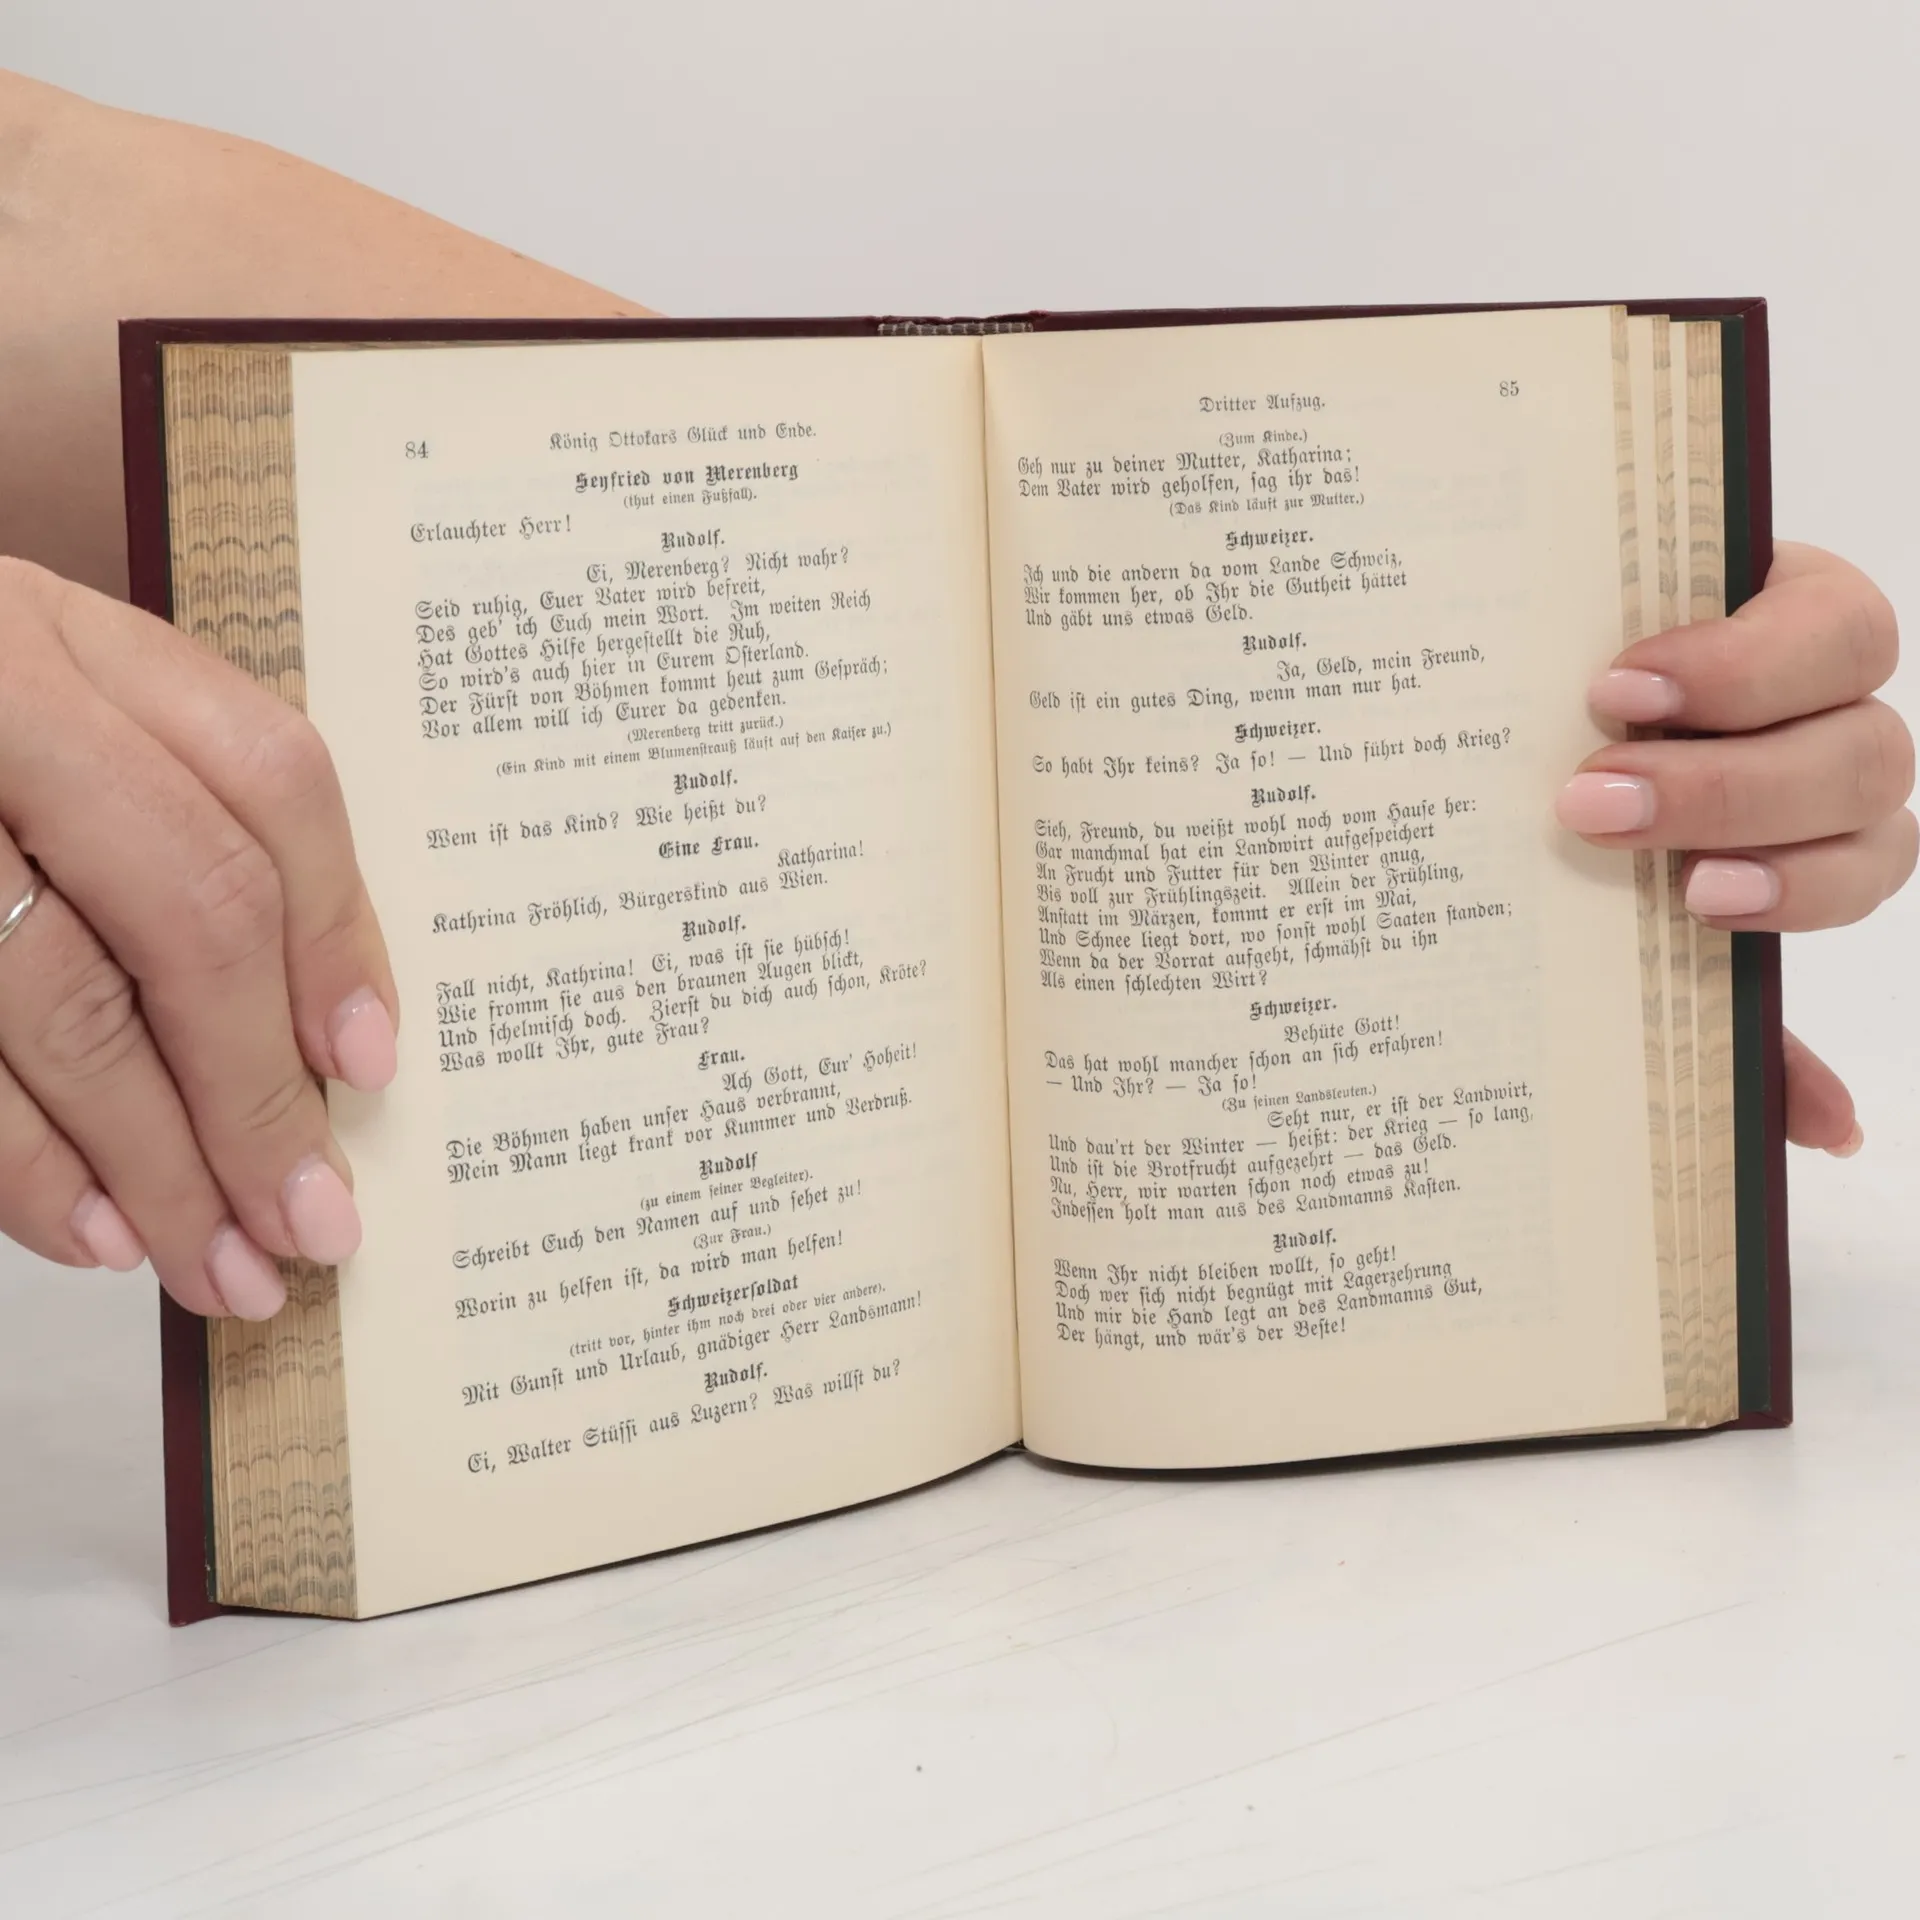 84
König Ottokars Glück und Ende.
Seyfried von Merenberg
(thut einen Fußfall).
Erlauchter Herr!
Rudolf.
Ei, Merenberg? Nicht wahr?
Seid ruhig, Euer Vater wird befreit,
Des geb' ich Euch mein Wort. Im weiten Reich
Hat Gottes Hilfe hergestellt die Ruh,
So wird's auch hier in Eurem Osterland.
Der Fürst von Böhmen kommt heut zum Gespräch;
Vor allem will ich Eurer da gedenken.
(Merenberg tritt zurück.)
(Ein Kind mit einem Blumenstrauß läuft auf den Kaiser zu.)
Rudolf.
Wem ist das Kind? Wie heißt du?
Eine Frau.
Katharina!
Kathrina Fröhlich, Bürgerskind aus Wien.
Rudolf.
Fall nicht, Kathrina! Ei, was ist sie hübsch!
Wie fromm sie aus den braunen Augen blickt,
Und schelmisch doch. Zierst du dich auch schon, Kröte?
Was wollt Ihr, gute Frau?
Frau.
Ach Gott, Eur' Hoheit!
Die Böhmen haben unser Haus verbrannt,
Mein Mann liegt krank vor Kummer und Verdruß.
Rudolf
(zu einem seiner Begleiter).
Schreibt Euch den Namen auf und sehet zu!
(Zur Frau.)
Worin zu helfen ist, da wird man helfen!
Schweizersoldat
(tritt vor, hinter ihm noch drei oder vier andere).
Mit Gunst und Urlaub, gnädiger Herr Landsmann!
Rudolf.
Ei, Walter Stüssi aus Luzern? Was willst du?
Dritter Aufzug.
85
(Zum Kinde.)
Geh nur zu deiner Mutter, Katharina;
Dem Vater wird geholfen, sag ihr das!
(Das Kind läuft zur Mutter.)
Schweizer.
Ich und die andern da vom Lande Schweiz,
Wir kommen her, ob Ihr die Gutheit hättet
Und gäbt uns etwas Geld.
Rudolf.
Ja, Geld, mein Freund,
Geld ist ein gutes Ding, wenn man nur hat.
Schweizer.
So habt Ihr keins? Ja so! — Und führt doch Krieg?
Rudolf.
Sieh, Freund, du weißt wohl noch vom Hause her:
Gar manchmal hat ein Landwirt aufgespeichert
An Frucht und Futter für den Winter gnug,
Bis voll zur Frühlingszeit. Allein der Frühling,
Anstatt im Märzen, kommt er erst im Mai,
Und Schnee liegt dort, wo sonst wohl Saaten standen;
Wenn da der Vorrat aufgeht, schmähst du ihn
Als einen schlechten Wirt?
Schweizer.
Behüte Gott!
Das hat wohl mancher schon an sich erfahren!
— Und Ihr? — Ja so!
(Zu seinen Landsleuten.)
Seht nur, er ist der Landwirt,
Und dau'rt der Winter — heißt: der Krieg — so lang,
Und ist die Brotfrucht aufgezehrt — das Geld.
Nu, Herr, wir warten schon noch etwas zu!
Indessen holt man aus des Landmanns Kasten.
Rudolf.
Wenn Ihr nicht bleiben wollt, so geht!
Doch wer sich nicht begnügt mit Lagerzehrung
Und mir die Hand legt an des Landmanns Gut,
Der hängt, und wär's der Beste!